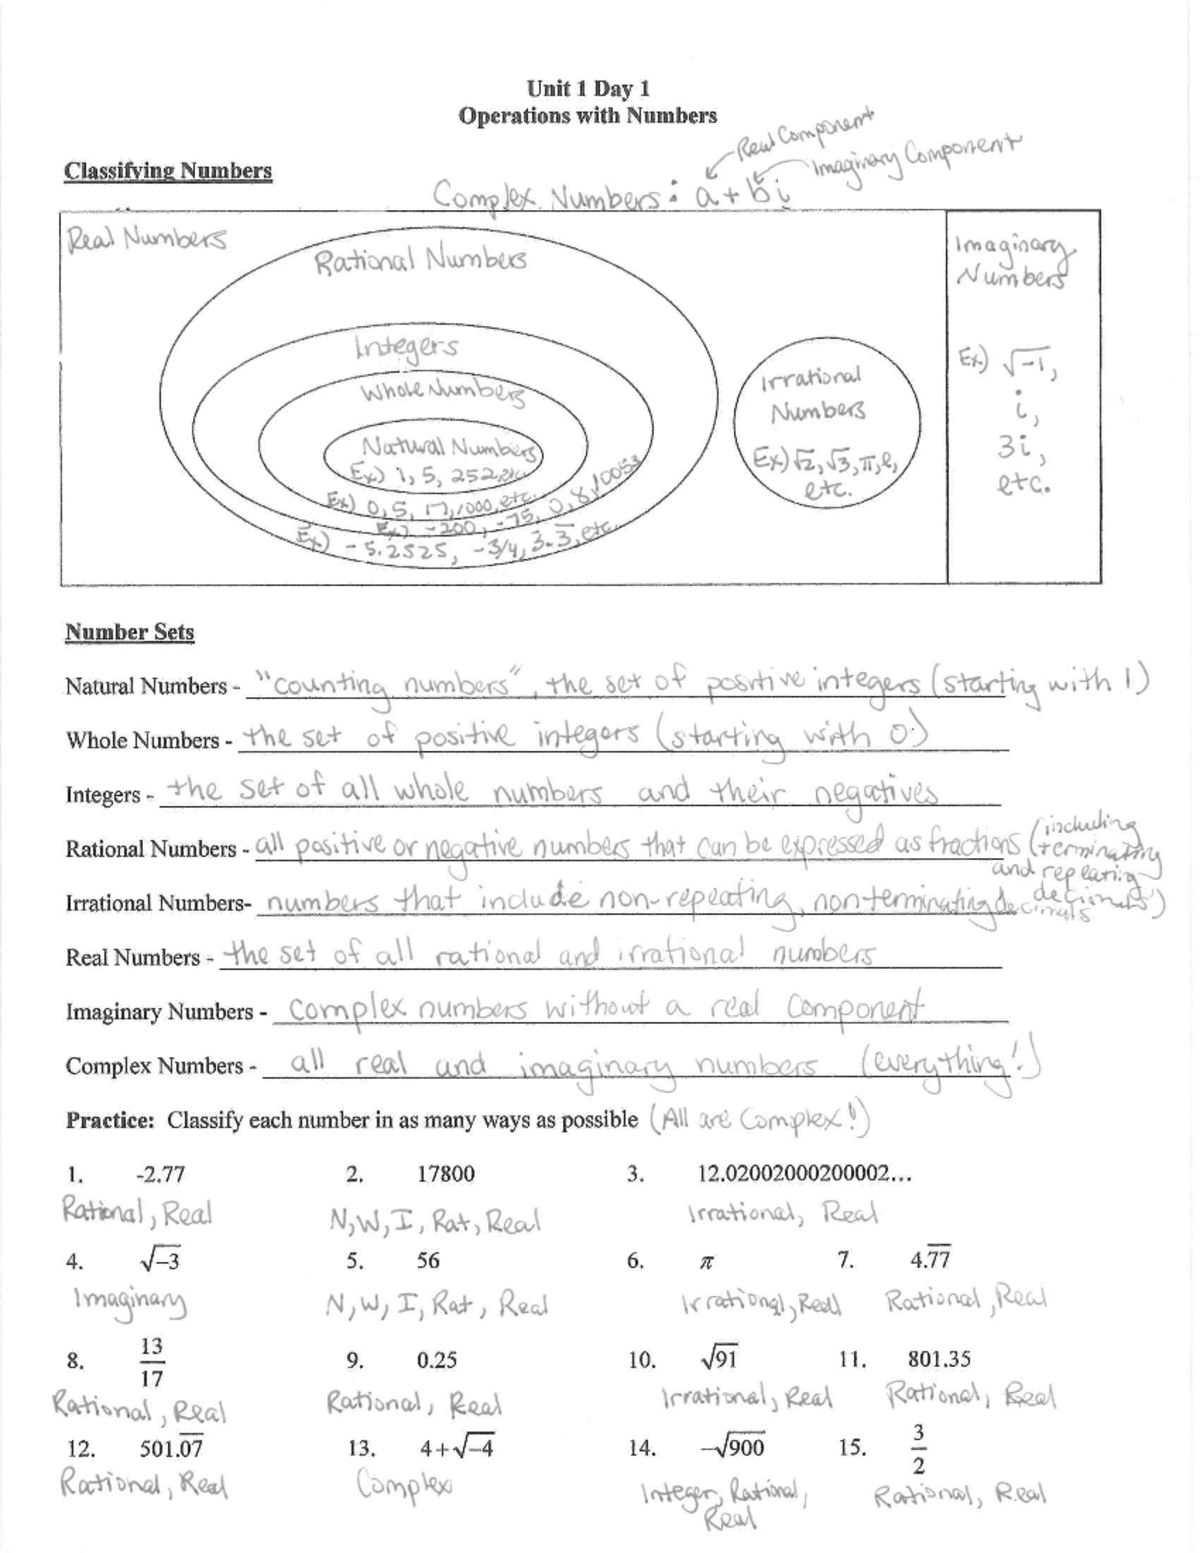 Unit 1 Day 1
Operations with Numbers
Real Component
Imaginary Component
Classifying Numbers
Complex Numbers: a + bi
Real Numbers
Rational Numbers
Integers
Whole Numbers
Natural Numbers
Ex) 1, 5, 252, etc.
Ex) 0, 5, 17, 1000, etc.
Ex) -200, -75, 0, 8, 10053
Ex) -5.2525, -3/4, 3.3̅, etc.
Irrational
Numbers
Ex) √2, √3, π, e,
etc.
Imaginary
Numbers
Ex) √-1,
i,
3i,
etc.
Number Sets
Natural Numbers - "counting numbers", the set of positive integers (starting with 1)
Whole Numbers - the set of positive integers (starting with 0)
Integers - the set of all whole numbers and their negatives
Rational Numbers - all positive or negative numbers that can be expressed as fractions (including terminating and repeating decimals)
Irrational Numbers- numbers that include non-repeating, nonterminating decimals
Real Numbers - the set of all rational and irrational numbers
Imaginary Numbers - complex numbers without a real component
Complex Numbers - all real and imaginary numbers (everything!)
Practice: Classify each number in as many ways as possible (All are Complex!)
1. -2.77 2. 17800 3. 12.02002000200002...
Rational, Real N, W, I, Rat, Real Irrational, Real
4. √-3 5. 56 6. π 7. 4.7̅7̅
Imaginary N, W, I, Rat, Real Irrational, Real Rational, Real
8. 13/17 9. 0.25 10. √91 11. 801.35
Rational, Real Rational, Real Irrational, Real Rational, Real
12. 501.0̅7̅ 13. 4+√-4 14. -√900 15. 3/2
Rational, Real Complex Integer, Rational, Rational, Real
Real